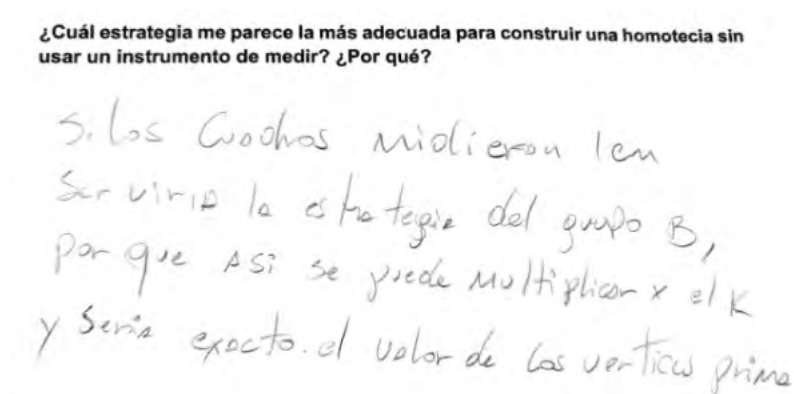 ¿Cuál estrategia me parece la más adecuada para construir una homotecia sin
usar un instrumento de medir? ¿Por qué?
Si los Cuadros midieron 1cm
Serviria la estrategia del grupo B,
por que Asi se puede Multiplicar x el K
y Seria exacto. el valor de los vertices prima